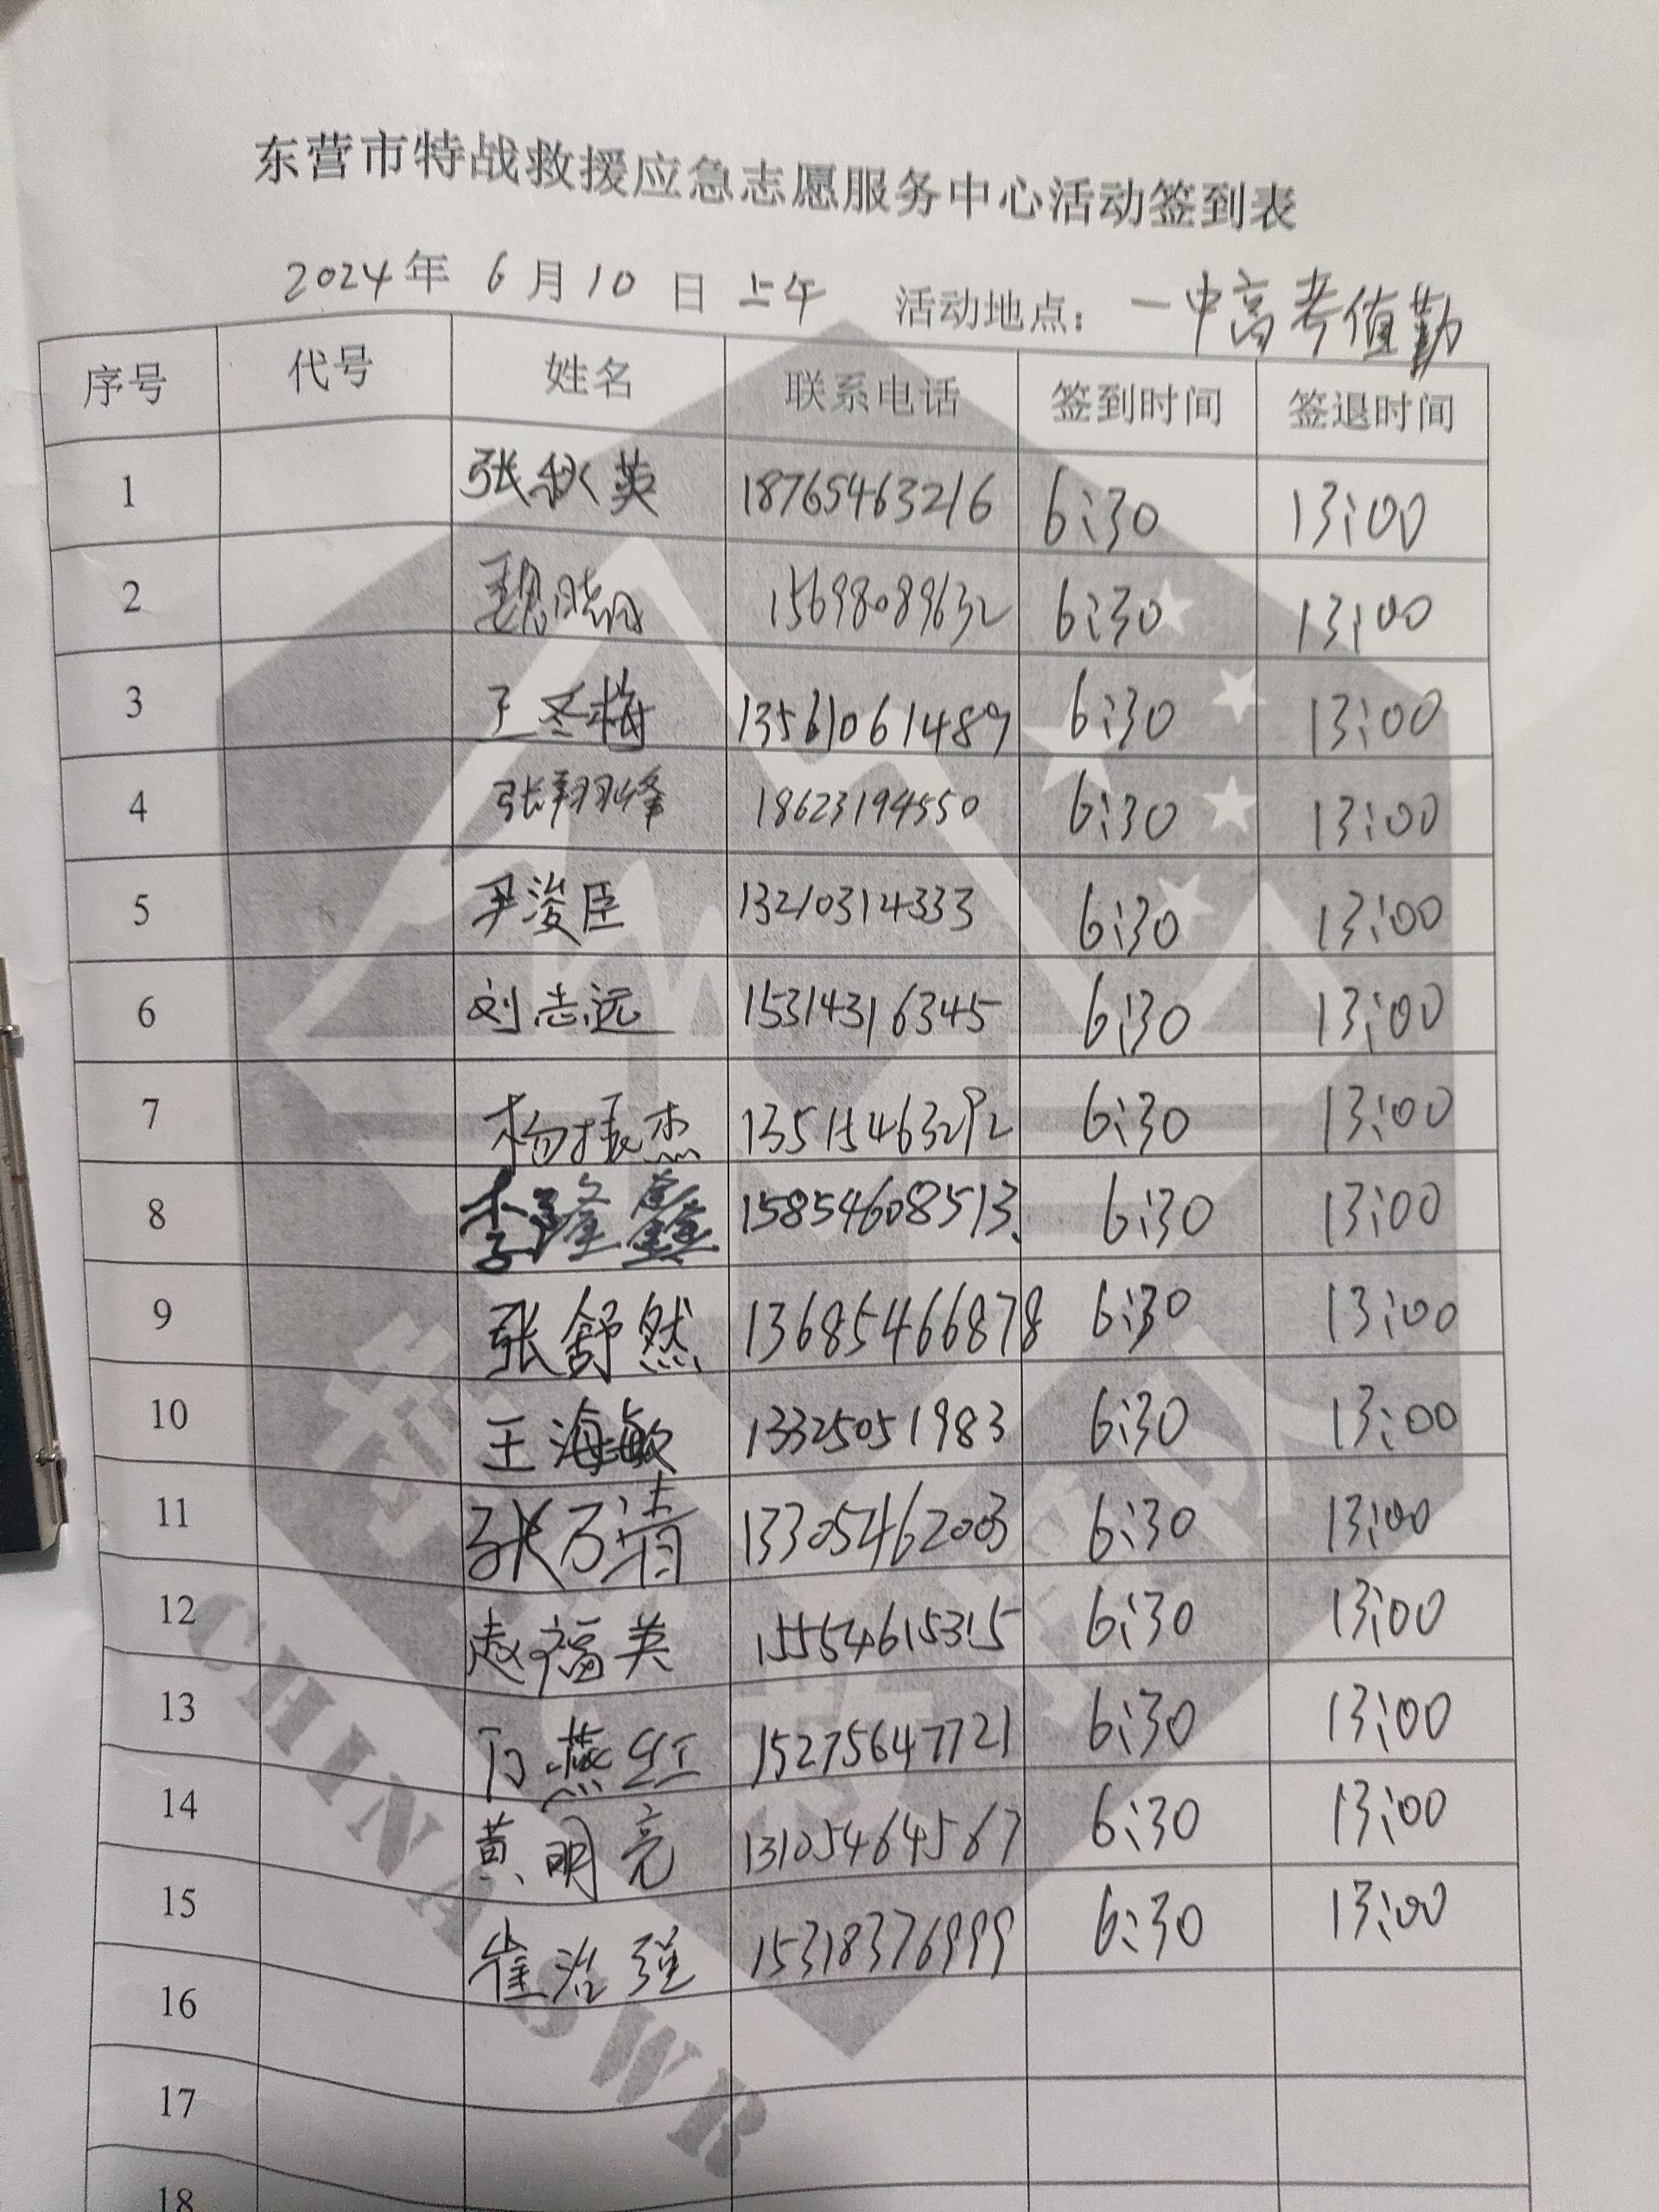 东营市特战救援应急志愿服务中心活动签到表
2024年 6月10日 上午 活动地点：一中高考值勤
序号 代号 姓名 联系电话 签到时间 签退时间
1 张秋英 18765463216 6:30 13:00
2 15698089632 6:30 13:00
3 王冬梅 13561061489 6:30 13:00
4 张翔峰 18623194550 6:30 13:00
5 尹浚臣 13210314333 6:30 13:00
6 刘志远 15314316345 6:30 13:00
7 杨振杰 13515463292 6:30 13:00
8 李隆鑫 15854608513 6:30 13:00
9 张舒然 13685466878 6:30 13:00
10 王海敏 13325051983 6:30 13:00
11 张万清 13305462003 6:30 13:00
12 赵福英 15554615315 6:30 13:00
13 燕红 15275647721 6:30 13:00
14 黄明亮 13105464567 6:30 13:00
15 崔治强 15318376999 6:30 13:00
16
17
18
CHINA SWR